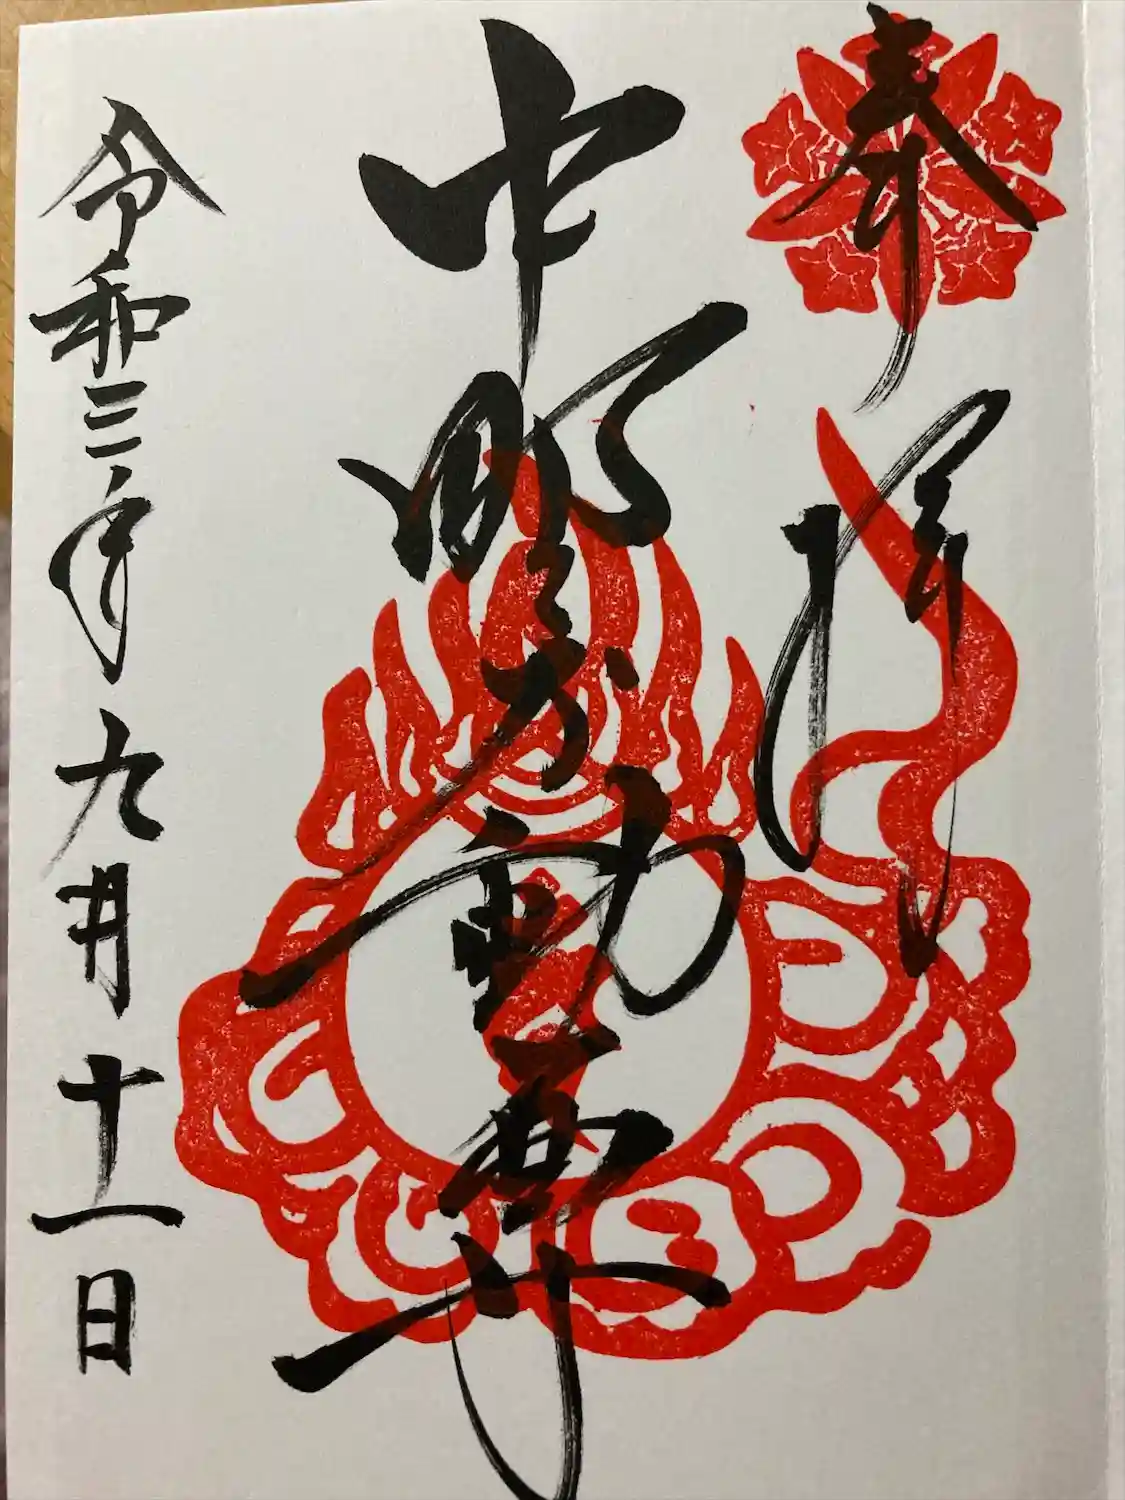 奉拝
中野不動尊
令和三年九月十一日